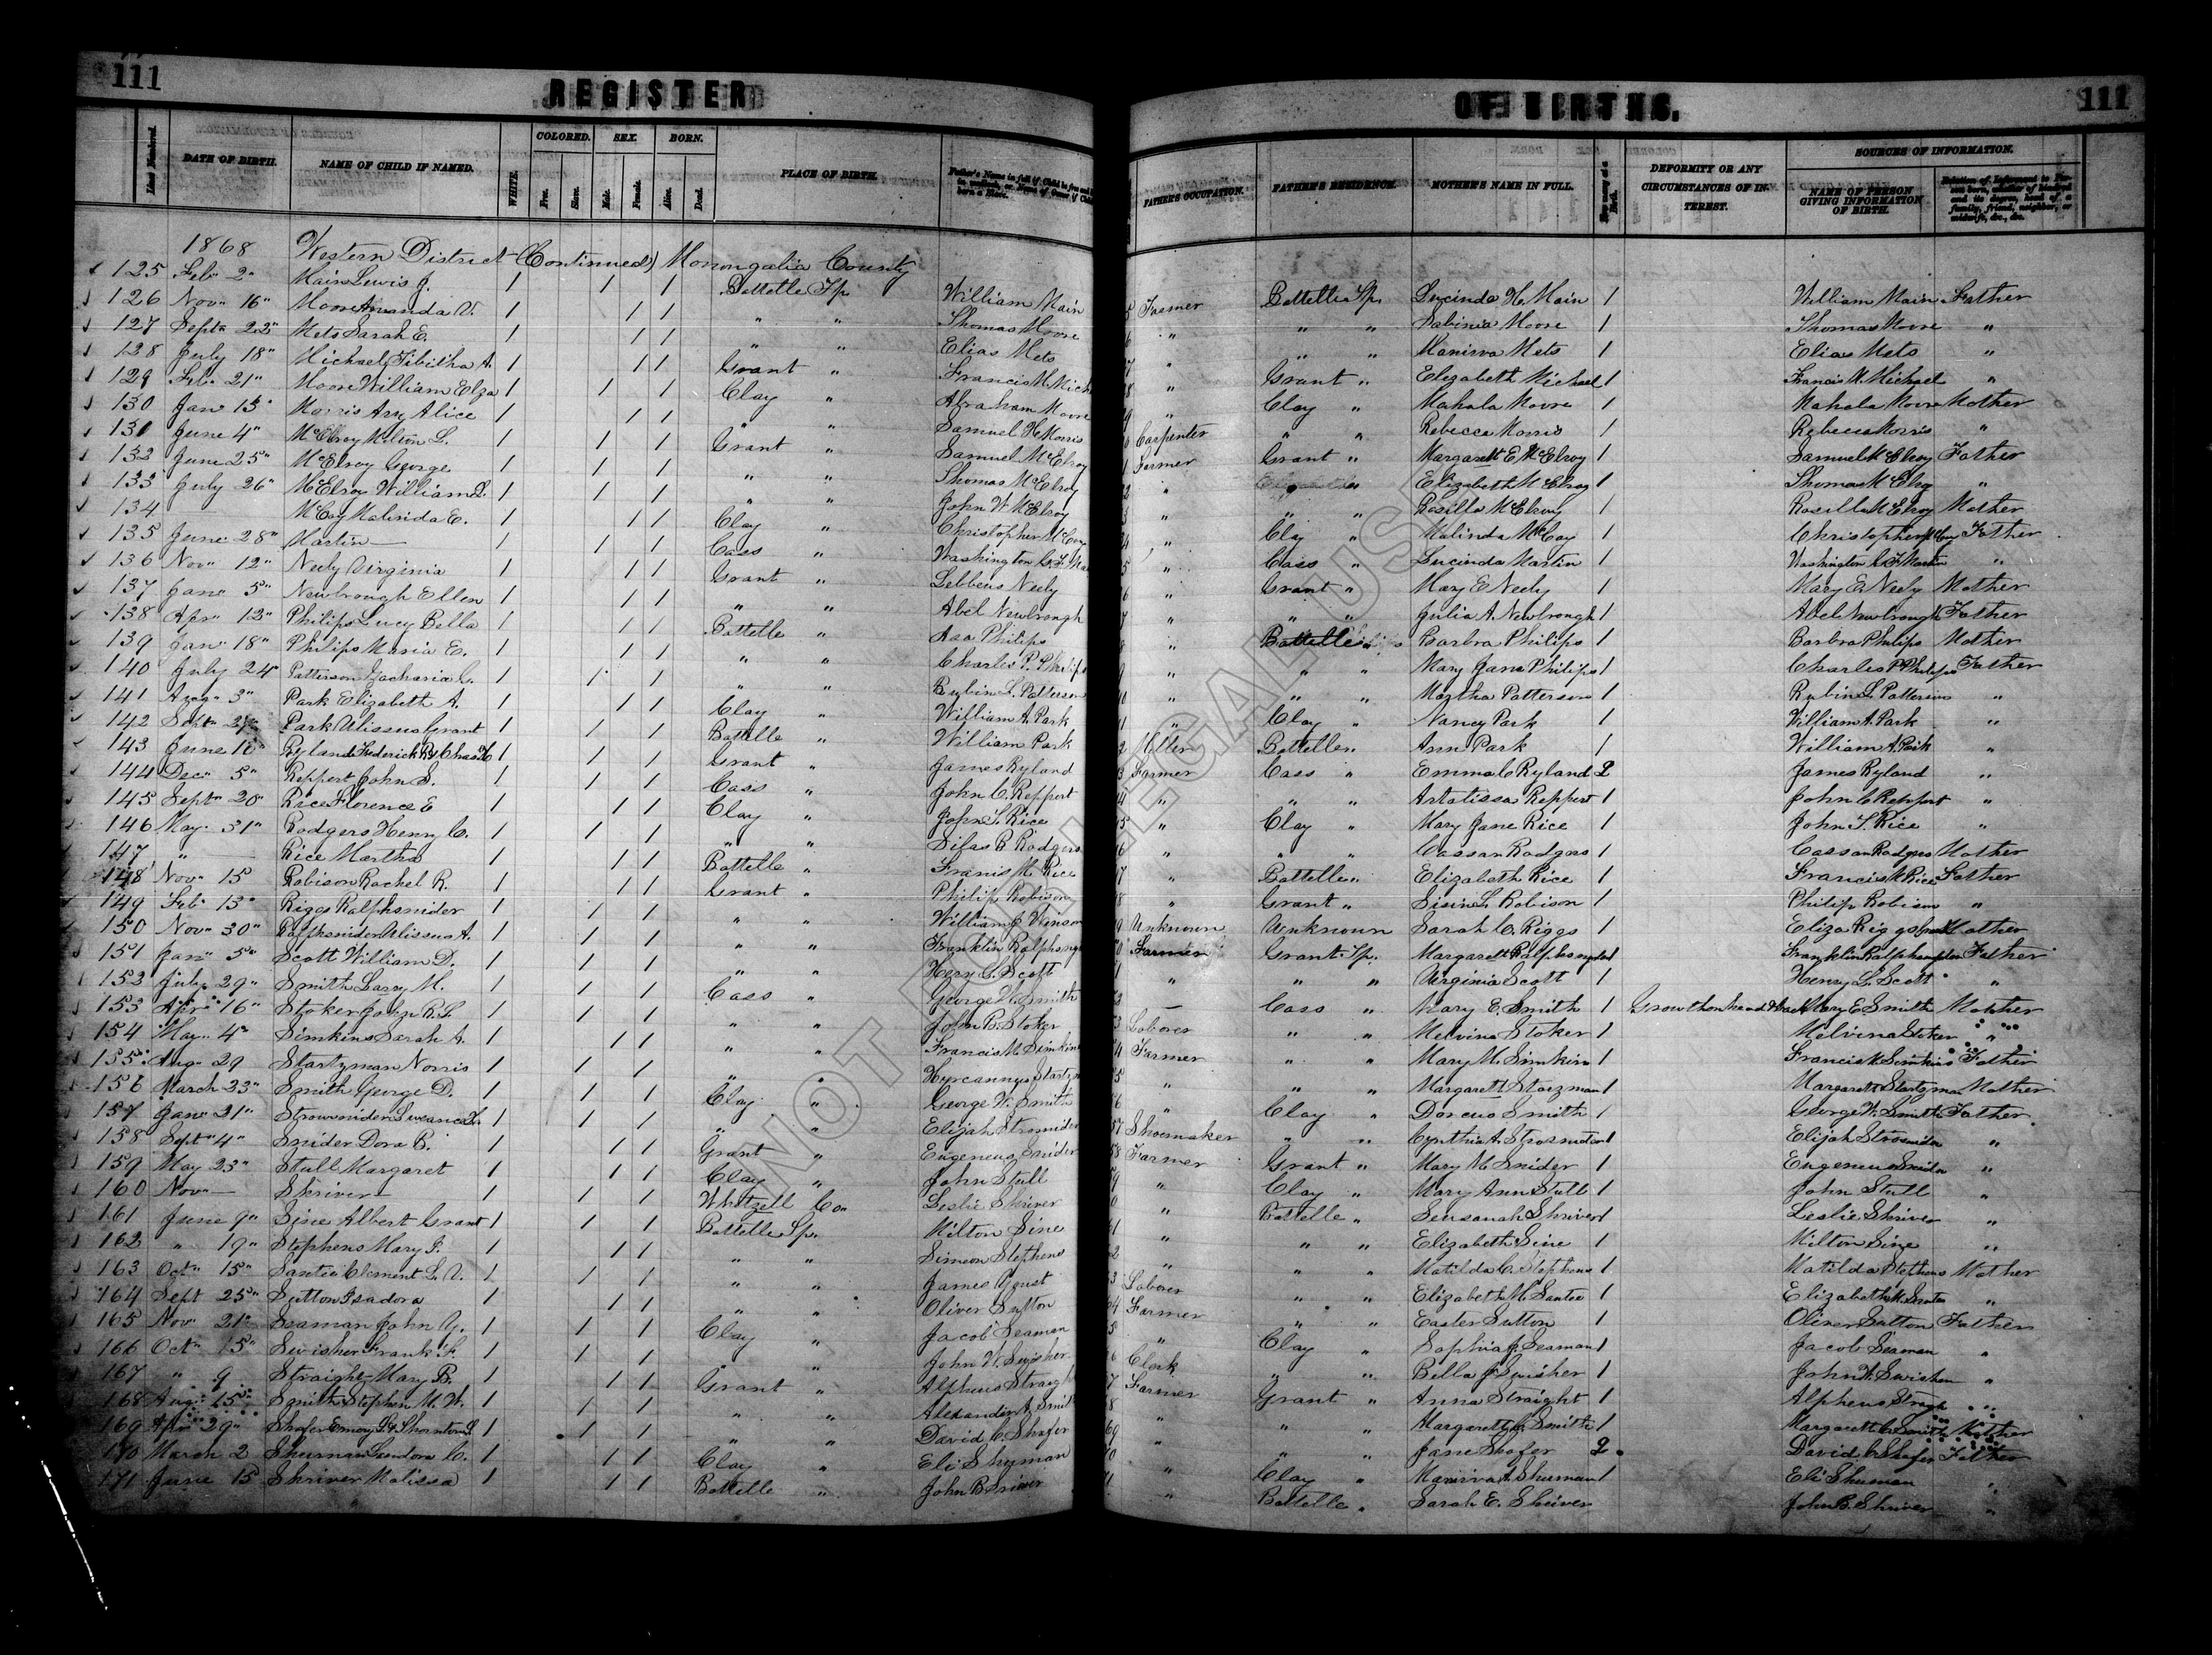 111
REGISTER OF BIRTHS.
111
Lines Numbered. DATE OF BIRTH. NAME OF CHILD IF NAMED. WHITE. COLORED. Free. Slave. SEX. Male. Female. BORN. Alive. Dead. PLACE OF BIRTH. Father's Name in full if Child is free and born in wedlock, or Name of Owner if Child born a Slave. FATHER'S OCCUPATION. FATHER'S RESIDENCE. MOTHER'S NAME IN FULL. DEFORMITY OR ANY CIRCUMSTANCES OF INTEREST. SOURCES OF INFORMATION. NAME OF PERSON GIVING INFORMATION OF BIRTH.
1868 Western District (Continued) Monongalia County
125 Feb 2" Main Lewis J. 1 1 1 Battelle Tp William Main Farmer Battelle Tp. Lucinda H. Main 1 William Main Father
126 Nov" 16" Moore Amanda V. 1 1 1 " " Thomas Moore " " " Sabinia Moore 1 Thomas Moore "
127 Sept" 22" Mets Sarah E. 1 1 1 " " Elias Mets " " " Manirva Mets 1 Elias Mets "
128 July 18" Michael Tibitha A. 1 1 1 Grant " Francis M. Mich " Grant " Elizabeth Michael 1 Francis M. Michael "
129 Feb" 21" Moore William Elza 1 1 1 Clay " Abraham Moore " Clay " Mahala Moore 1 Mahala Moore Mother
130 Jan" 13" Morris Ary Alice 1 1 1 " " Samuel H. Morris Carpenter " " Rebecca Morris 1 Rebecca Morris "
131 June 4" McElroy Milton L. 1 1 1 Grant " Samuel McElroy Farmer Grant " Margarett E McElroy 1 Samuel McElroy Father
132 June 25" McElroy George 1 1 1 " " Thomas McElroy " " Elizabeth McElroy 1 Thomas McElroy "
133 July 26" McElroy William L. 1 1 1 " " John W. McElroy " " " Rosilla McElroy 1 Rosilla McElroy Mother
134 McCoy Malinda E. 1 1 1 Clay " Christopher McCoy " Clay " Malinda McCoy 1 Christopher McCoy Father
135 June 28" Martin — 1 1 1 Cass " Washington " Cass " Lucinda Martin 1 Washington Martin "
136 Nov" 12" Neely Virginia 1 1 1 Grant " Lebbeus Neely " Grant " Mary E Neely 1 Mary E Neely Mother
137 Jan" 5" Newbrough Ellen 1 1 1 " " Abel Newbrough " " " Julia A. Newbrough 1 Abel Newbrough Father
138 Apr" 12" Philips Lucy Bella 1 1 1 Battelle " Asa Philips " Battelle Barbra Philips 1 Barbra Philips Mother
139 Jan" 18" Philips Maria E. 1 1 1 " " Charles P. Philips " " " Mary Jane Philips 1 Charles P Philips Father
140 July 24" Patterson Zacharia C. 1 1 1 " " Rubin L. Patterson " " " Martha Patterson 1 Rubin L. Patterson "
141 Aug" 3" Park Elizabeth A. 1 1 1 Clay " William A. Park " Clay " Nancy Park 1 William A. Park "
142 Sept" Park Ulissus Grant 1 1 1 Battelle " William Park Miller Battelle " Ann Park 1 William A. Park "
143 June Ryland Frederick R & Chas H 1 1 1 Grant " James Ryland Farmer Cass " Emma C Ryland 2 James Ryland "
144 Dec" 5" Reppert John S. 1 1 1 Cass " John C. Reppert " " " Artatissa Reppert 1 John C Reppert "
145 Sept" 20" Rice Florence E 1 1 1 Clay " John T. Rice " Clay " Mary Jane Rice 1 John T. Rice "
146 May 31" Rodgers Henry C. 1 1 1 " " Silas B Rodgers " " " Cassan Rodgers 1 Cassan Rodgers Mother
147 " — Rice Martha 1 1 1 Battelle " Francis M. Rice " Battelle " Elizabeth Rice 1 Francis M Rice Father
148 Nov" 15 Robison Rachel R. 1 1 1 Grant " Philip Robison " Grant " L. Robison 1 Philip Robison "
149 Feb" 13" Riggs Ralphsnider 1 1 1 " " William Unknown Unknown Sarah C. Riggs 1 Eliza Riggs
150 Nov" 30" Ralphsnider Ulissus A. 1 1 1 " " Franklin Farmer Grant Tp. Margarett 1 Franklin Father
151 Jan" 5" Scott William D. 1 1 1 " " Henry L. Scott " " " Virginia Scott 1 Henry L. Scott "
152 July 29" Smith M. 1 1 1 Cass " George W. Smith — Cass " Mary E. Smith 1 Growth on head & back Mary E Smith Mother
153 Apr" 16" Stoker John R.L. 1 1 1 " " John B. Stoker Laborer " " Melvina Stoker 1 Melvina Stoker "
154 May 4" Simkins Sarah A. 1 1 1 " " Francis M. Simkins Farmer " " Mary M. Simkins 1 Francis M Simkins Father
155 Aug" 29 Startzman Norris 1 1 1 " " Hyrcannus " " " Margarett 1 Margarett Startzman Mother
156 March 23" Smith George D. 1 1 1 Clay " George W. Smith " Clay " Dorcus Smith 1 George W. Smith Father
157 Jan" 21" 1 1 1 " " Elijah Strosnider Shoemaker " " Cynthia A. Strosnider 1 Elijah Strosnider "
158 Sept" 4" Snider Dora B. 1 1 1 Grant " Eugeneus Snider Farmer Grant " Mary M Snider 1 Eugeneus Snider "
159 May 23" Stull Margaret 1 1 1 Clay " John Stull " Clay " Mary Ann Stull 1 John Stull "
160 Nov" — Skriver — 1 1 1 Whitzell Co" Leslie Shriver " Battelle " Sensanah Shriver 1 Leslie Shriver "
161 June 9" Sine Albert Grant 1 1 1 Battelle Tp. Milton Sine " " " Elizabeth Sine 1 Milton Sine "
162 " 19" Stephens Mary J. 1 1 1 " " Simeon Stephens " " Matilda C. Stephens 1 Matilda Stephens Mother
163 Oct" 15" Santee Clement L. V. 1 1 1 " " James Youst Laborer " " Elizabeth M. Santee 1 Elizabeth M. Santee "
164 Sept 25" Sutton Isadora 1 1 1 " " Oliver Sutton Farmer " " Easter Sutton 1 Oliver Sutton Father
165 Nov" 21" Seaman John Y. 1 1 1 Clay " Jacob Seaman " Clay " Sophia J Seaman 1 Jacob Seaman "
166 Oct" 15" Swisher Frank F. 1 1 1 " " John W. Swisher Clerk " " Bella J Swisher 1 John W. Swisher "
167 " 9 Straight Mary B. 1 1 1 Grant " Alpheus Straight Farmer Grant " Anna Straight 1 Alpheus "
168 Aug" 15" Smith Stephen M. W. 1 1 1 " " Alexander A. Smith " " " Margarett C. Smith 1 Margarett C. Smith Mother
169 Apr" 29" Shafer Emery & Thornton 1 1 1 " " David C. Shafer " " " Jane Shafer 2 David C Shafer Father
170 March 2 Shuman Lendora C. 1 1 1 Clay " Eli Shuman " Clay " Manirva A Shuman 1 Eli Shuman "
171 June 15 Shriver Malissa 1 1 1 Battelle " John B Shriver " Battelle " Sarah E. Shriver John B. Shriver "
NOT FOR LEGAL USE